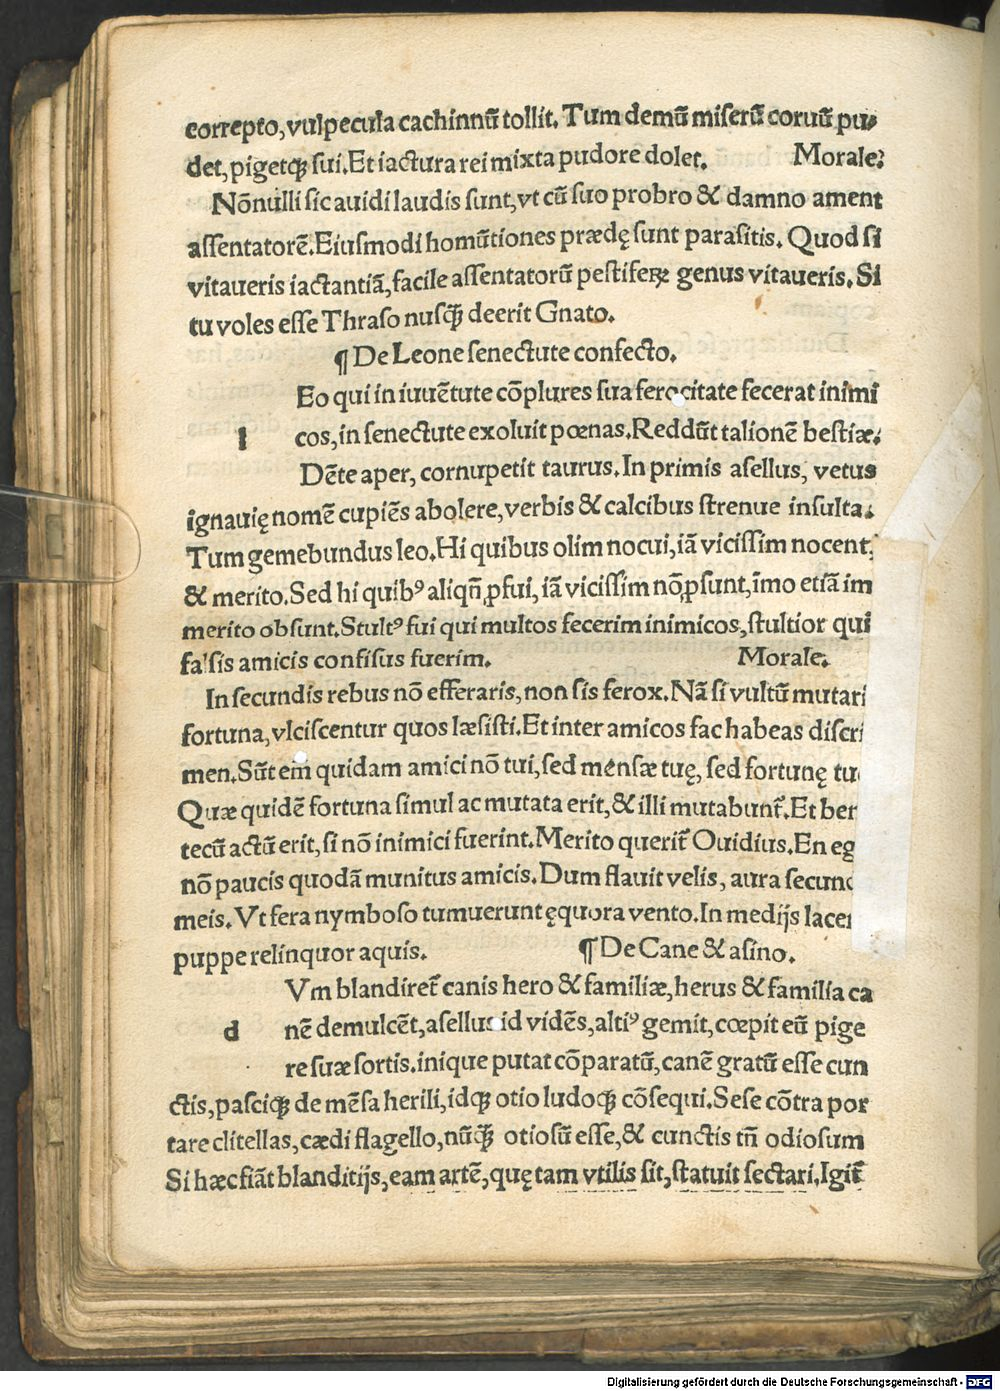 correpto, vulpecula cachinnū tollit. Tum demū miserū coruū pu⸗
det, pigetqꝫ sui. Et iactura rei mixta pudore dolet. Morale.
Nōnulli sic auidi laudis sunt, vt cū suo probro & damno ament
assentatorē. Eiusmodi homūtiones prædę sunt parasitis. Quod si
vitaueris iactantiā, facile assentatorū pestiferꝝ genus vitaueris. Si
tu voles esse Thraso nusqꝫ̄ deerit Gnato.
¶ De Leone senectute confecto.
Eo qui in iuuētute cōplures sua ferocitate fecerat inimi
l cos, in senectute exoluit pœnas. Reddūt talionē bestiæ.
Dēte aper, cornu petit taurus. In primis asellus, vetus
ignauię nomē cupiēs abolere, verbis & calcibus strenue insulta.
Tum gemebundus leo. Hi quibus olim nocui, iā vicissim nocent,
& merito. Sed hi quibꝰ aliqn̄ ꝓfui, iā vicissim nō ꝓsunt, īmo etiā im
merito obsunt. Stultꝰ fui qui multos fecerim inimicos, stultior qui
falsis amicis confisus fuerim. Morale.
In secundis rebus nō efferaris, non sis ferox. Nā si vultū mutari
fortuna, vlciscentur quos læsisti. Et inter amicos fac habeas discri
men. Sūt em̄ quidam amici nō tui, sed mensæ tuę, sed fortunę tu
Quæ quidē fortuna simul ac mutata erit, & illi mutabunt᷑. Et ber
tecū actū erit, si nō inimici fuerint. Merito querit᷑ Ouidius. En eg
nō paucis quodā munitus amicis. Dum flauit velis, aura secund
meis. Vt fera nymboso tumuerunt ęquora vento. In medijs lacer
puppe relinquor aquis. ¶ De Cane & asino.
Vm blandiret᷑ canis hero & familiæ, herus & familia ca
d nē demulcēt, asellus id vidēs, altiꝰ gemit, cœpit eū pige
re suæ sortis. inique putat cōparatū, canē gratū esse cun
ctis, pasciqꝫ de mēsa herili, idqꝫ otio ludoqꝫ cōsequi. Sese cōtra por
tare clitellas, cædi flagello, nūqꝫ̄ otiosū esse, & cunctis tn̄ odiosum
Si hæc fiāt blanditijs, eam artē, quę tam vtilis sit, statuit sectari. Igit᷑
Digitalisierung gefördert durch die Deutsche Forschungsgemeinschaft - DFG